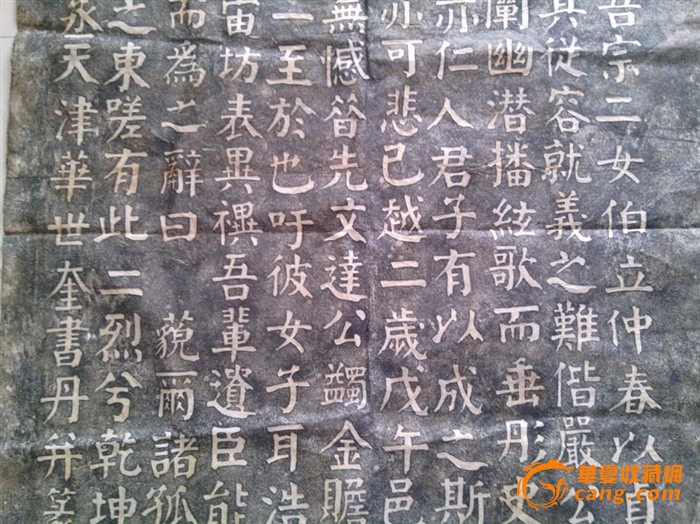 吾宗二女伯立仲春以貞
其從容就義之難偕嚴
闡幽潛播絃歌而垂彤史
亦仁人君子有以成之斯
亦可悲已越二歲戊午邑
無憾昝先文達公蠲金贍
一至於也吁彼女子耳浩
宙坊表異禩吾輩遺臣能
而為之辭曰 藐爾諸孤
之東嗟有此二烈兮乾坤
丞天津華世奎書丹并篆
華夏收藏網
cang.com